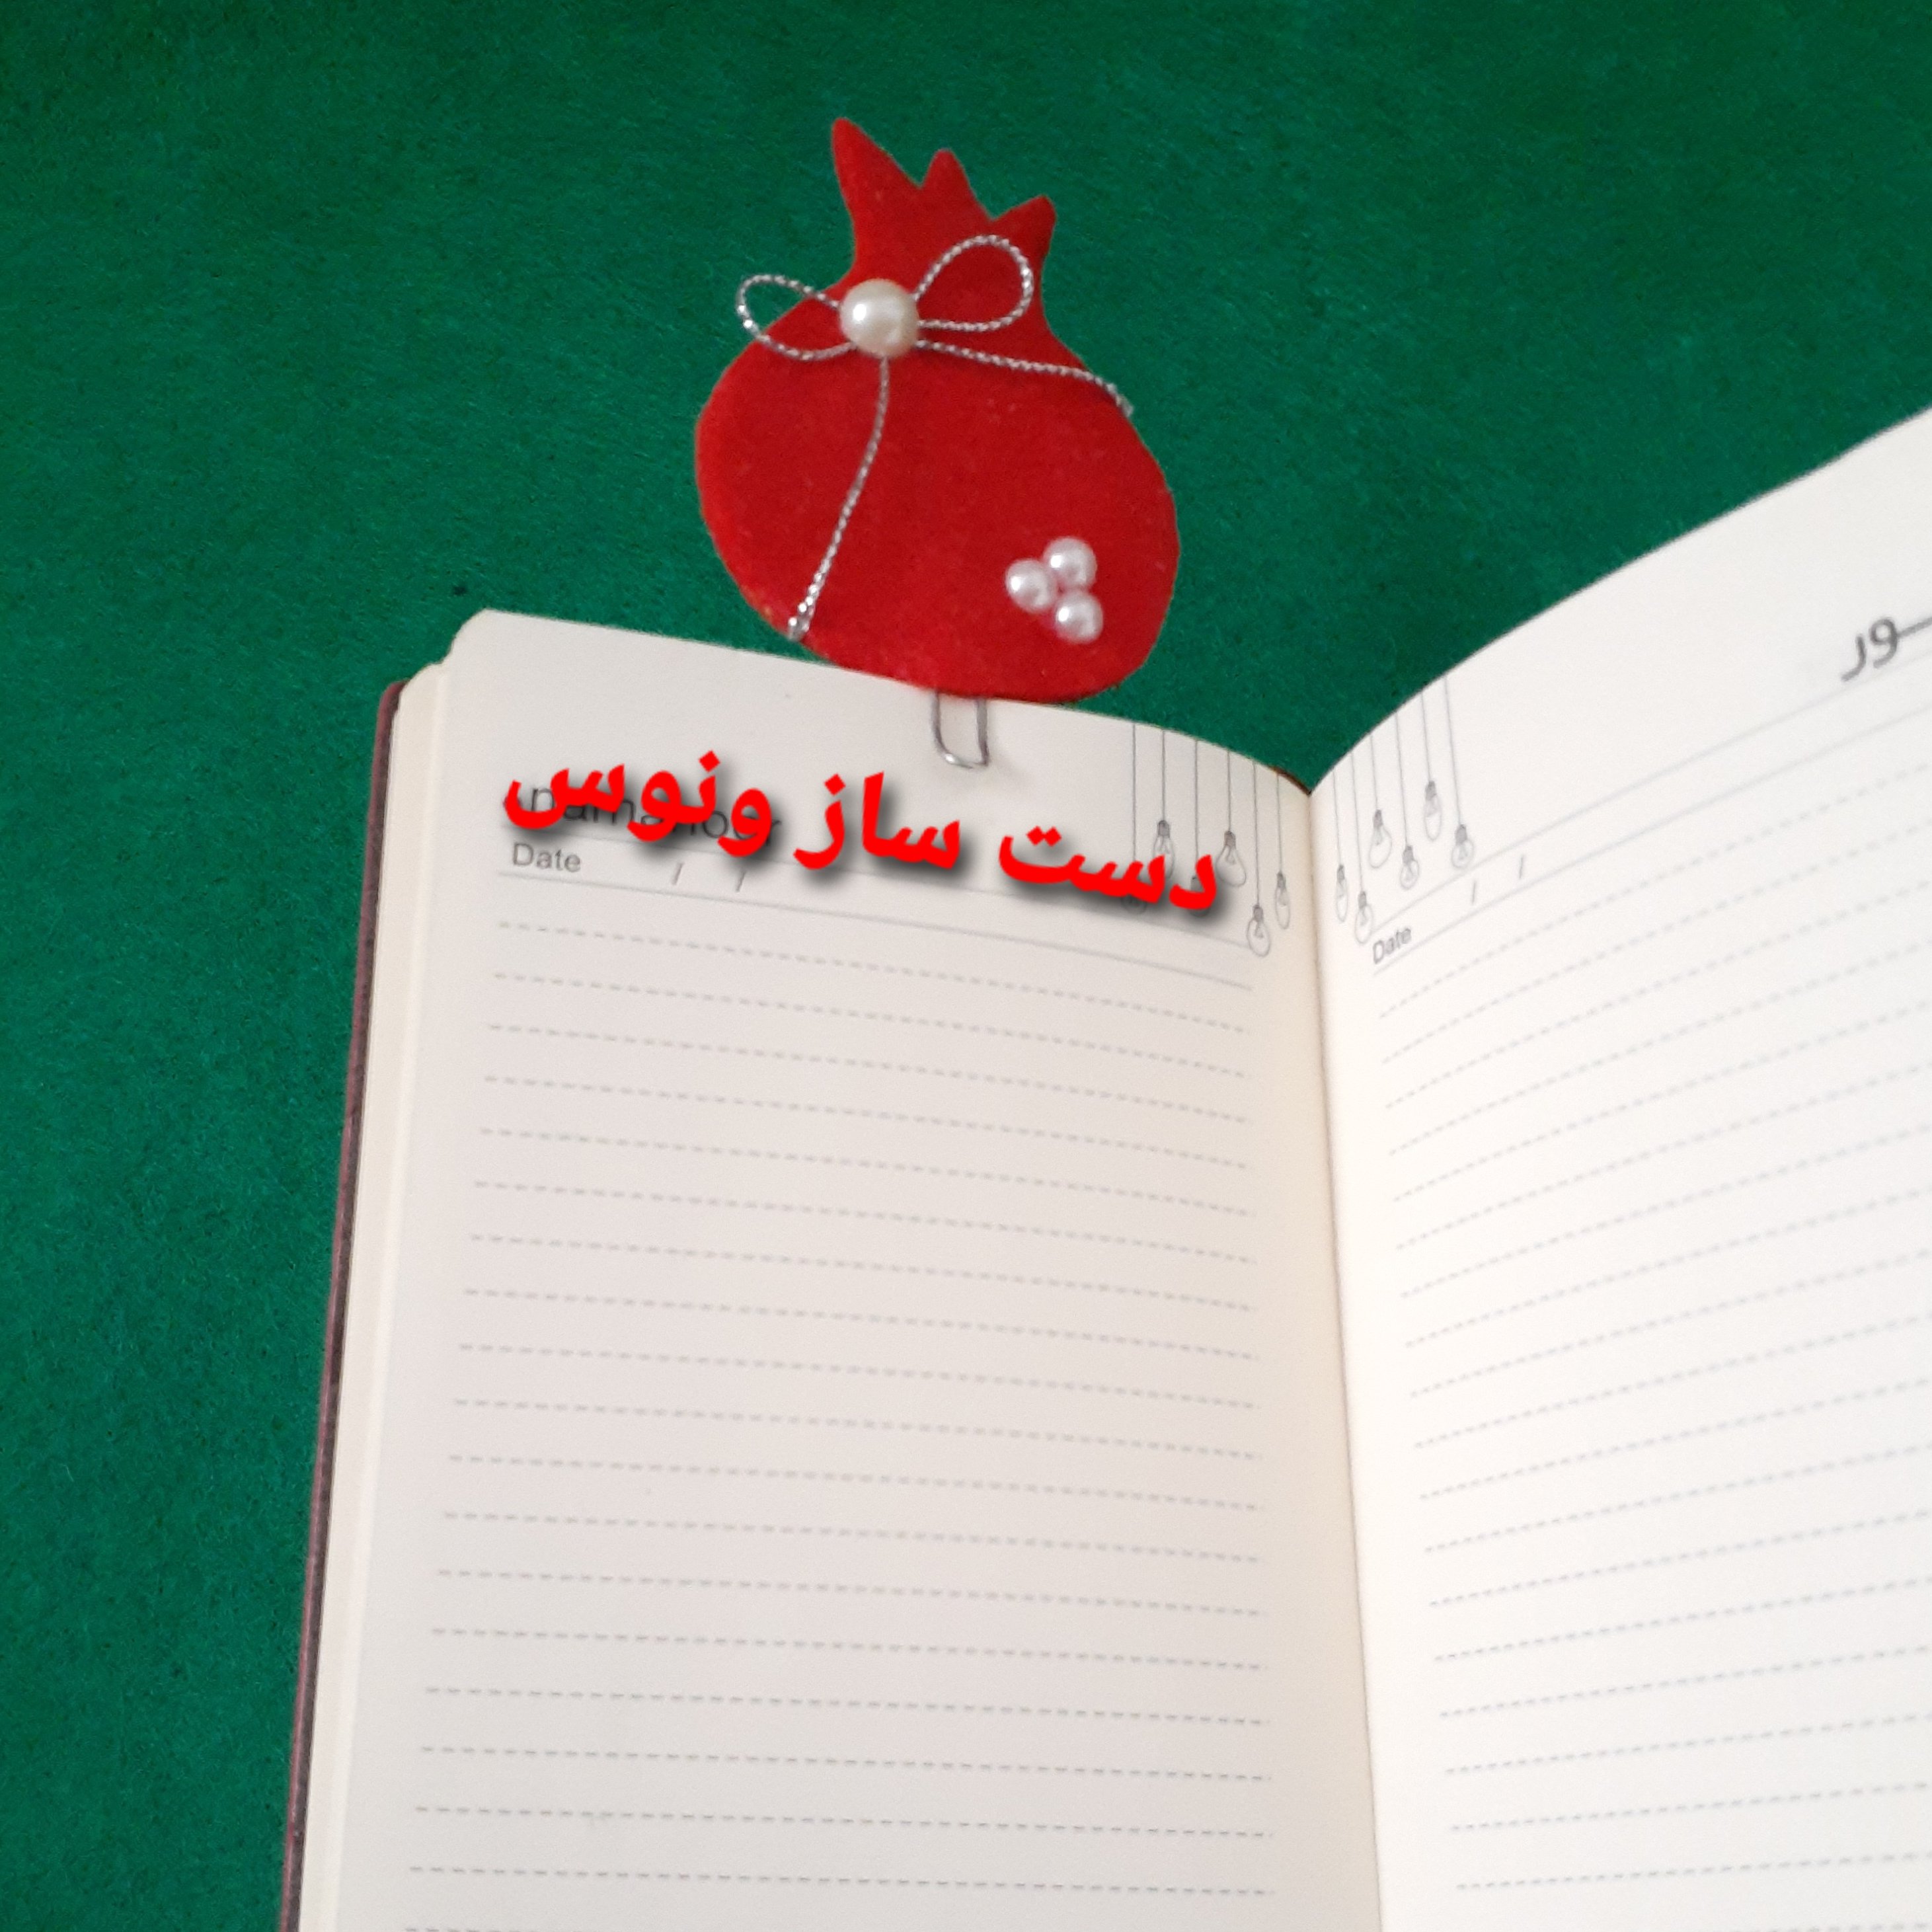 دست ساز ونوس
Date / /
Date / /